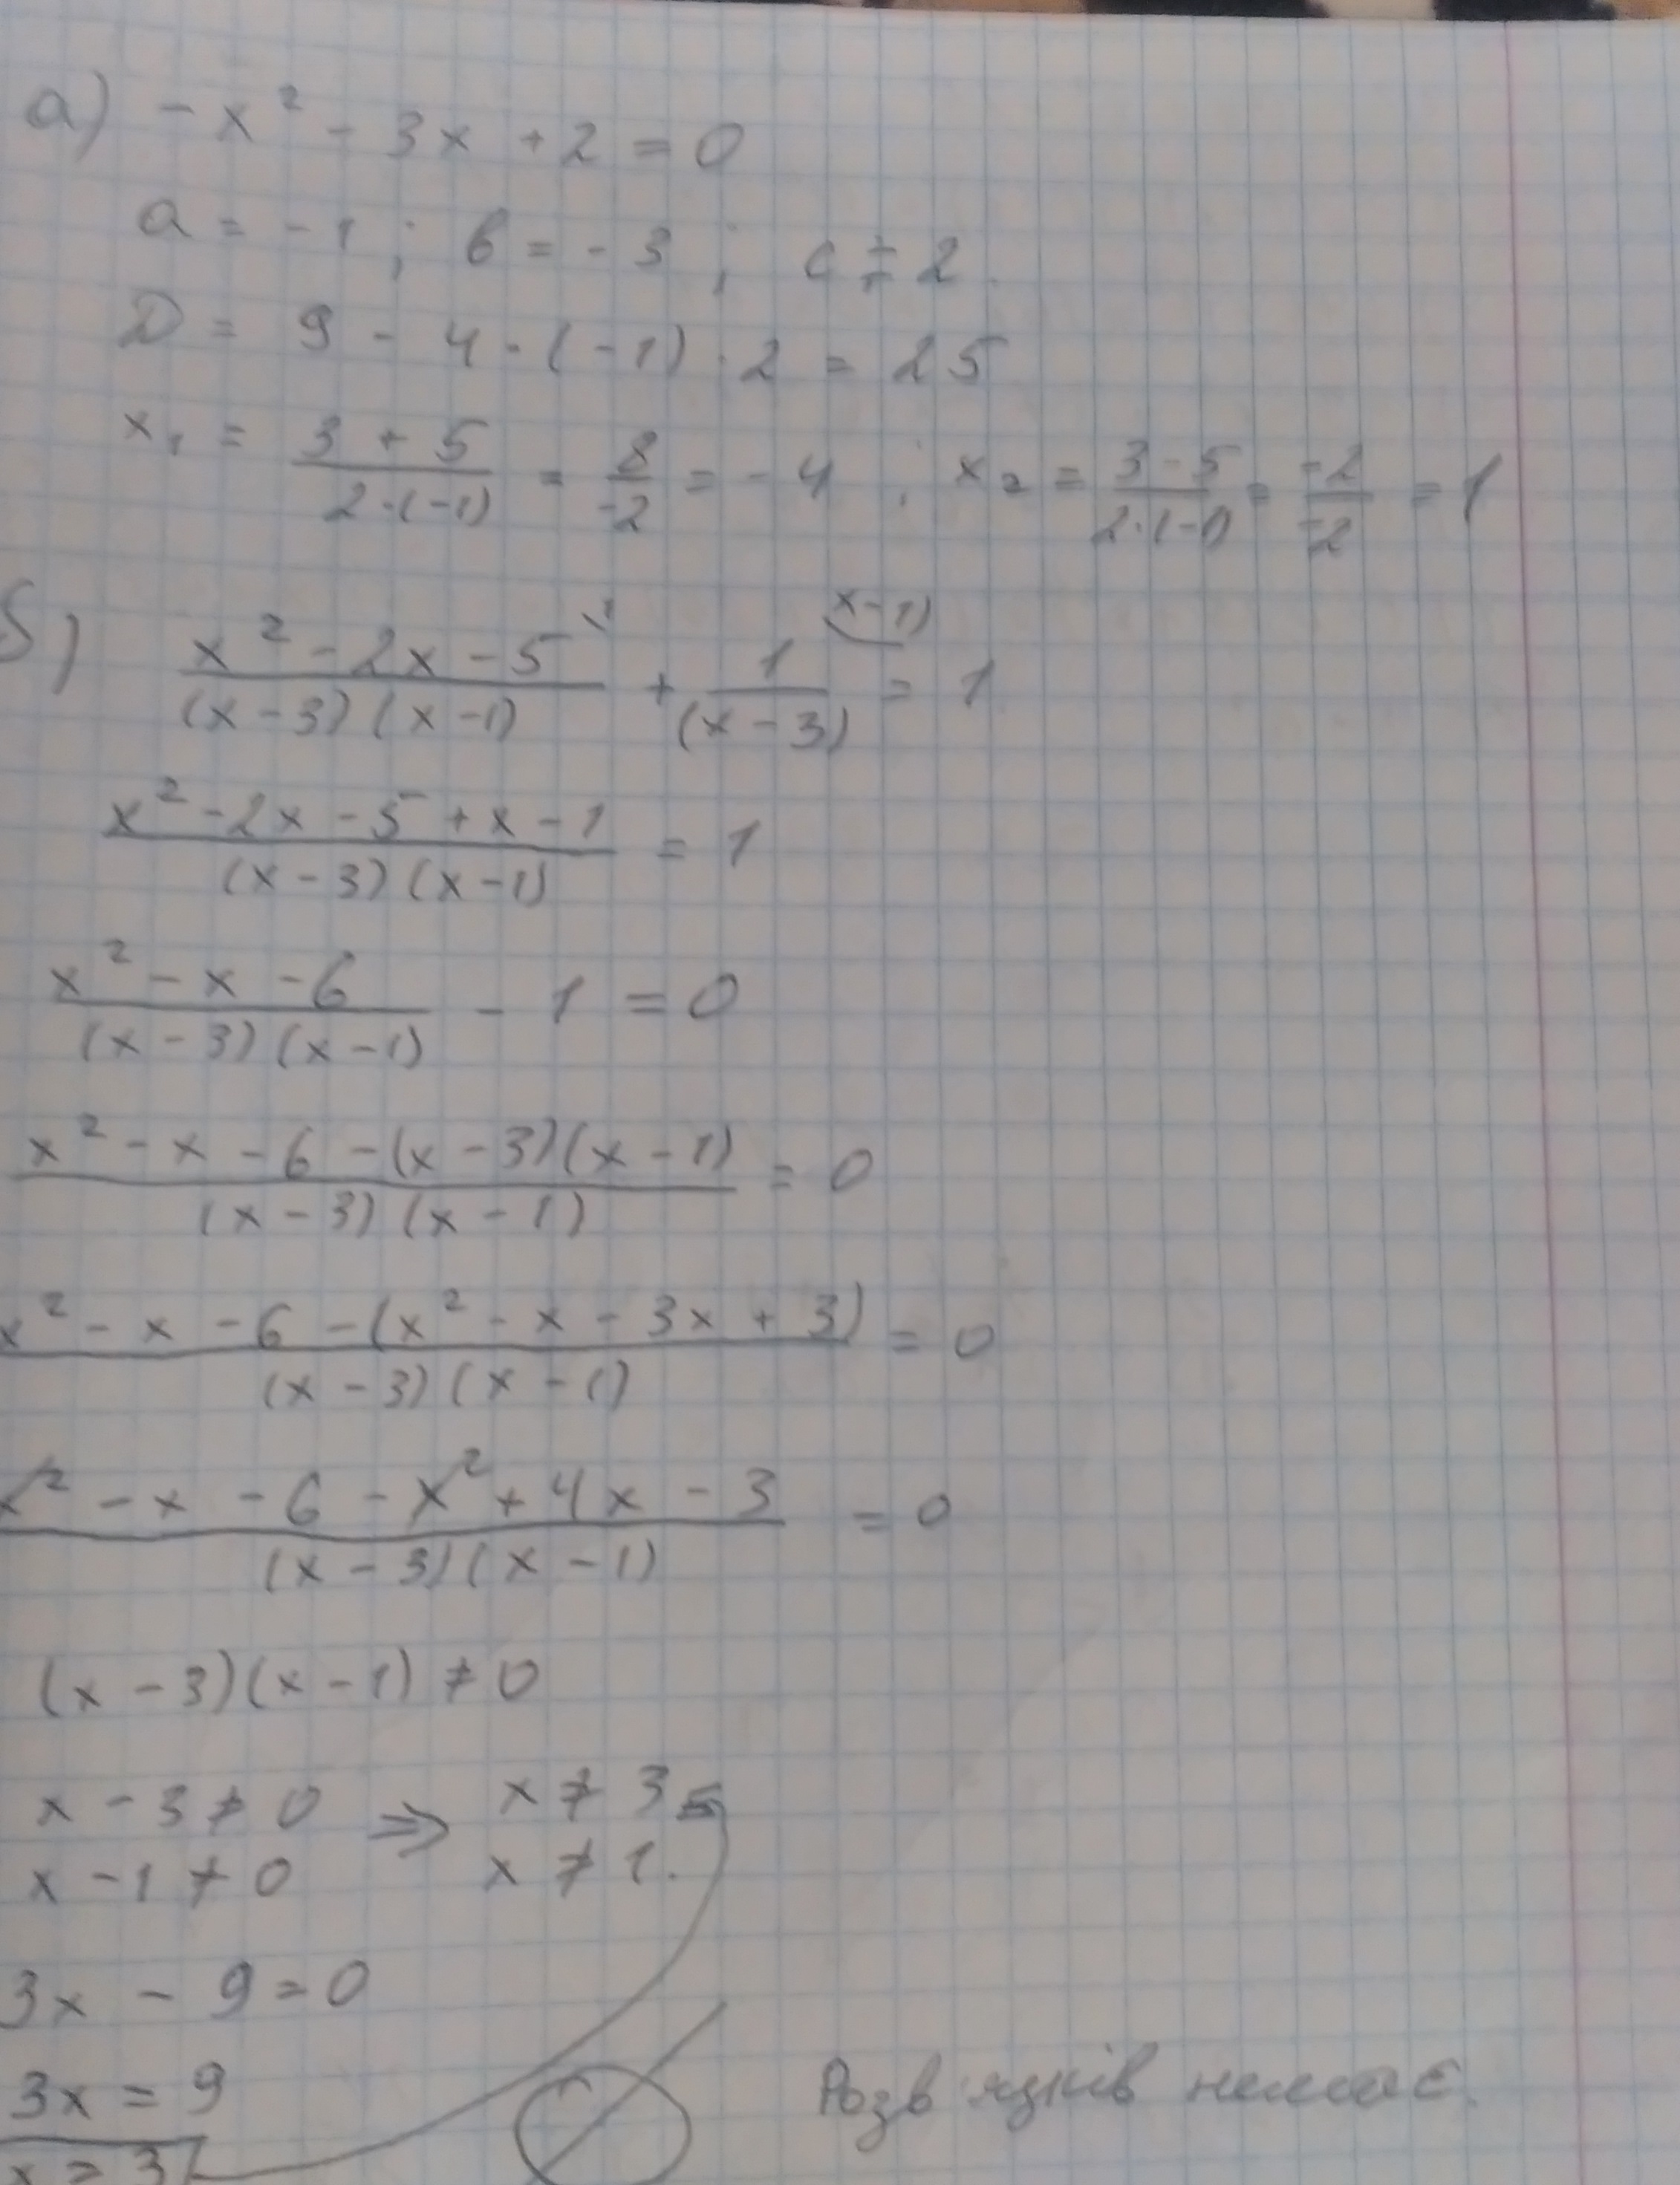 а) -x² - 3x + 2 = 0
a = -1 ; b = -3 ; c = 2.
D = 9 - 4 · (-1) · 2 = 25
x₁ = (3 + 5)/(2·(-1)) = 8/-2 = -4 ; x₂ = (3 - 5)/(2·(-1)) = -2/-2 = 1
б) (x² - 2x - 5)/((x - 3)(x - 1)) \1 + 1/(x - 3) \x-1) = 1
(x² - 2x - 5 + x - 1)/((x - 3)(x - 1)) = 1
(x² - x - 6)/((x - 3)(x - 1)) - 1 = 0
(x² - x - 6 - (x - 3)(x - 1))/((x - 3)(x - 1)) = 0
(x² - x - 6 - (x² - x - 3x + 3))/((x - 3)(x - 1)) = 0
(x² - x - 6 - x² + 4x - 3)/((x - 3)(x - 1)) = 0
(x - 3)(x - 1) ≠ 0
x - 3 ≠ 0 ⇒ x ≠ 3
x - 1 ≠ 0 x ≠ 1.
3x - 9 = 0
3x = 9
x = 3 ∅ Розв'язків немає.